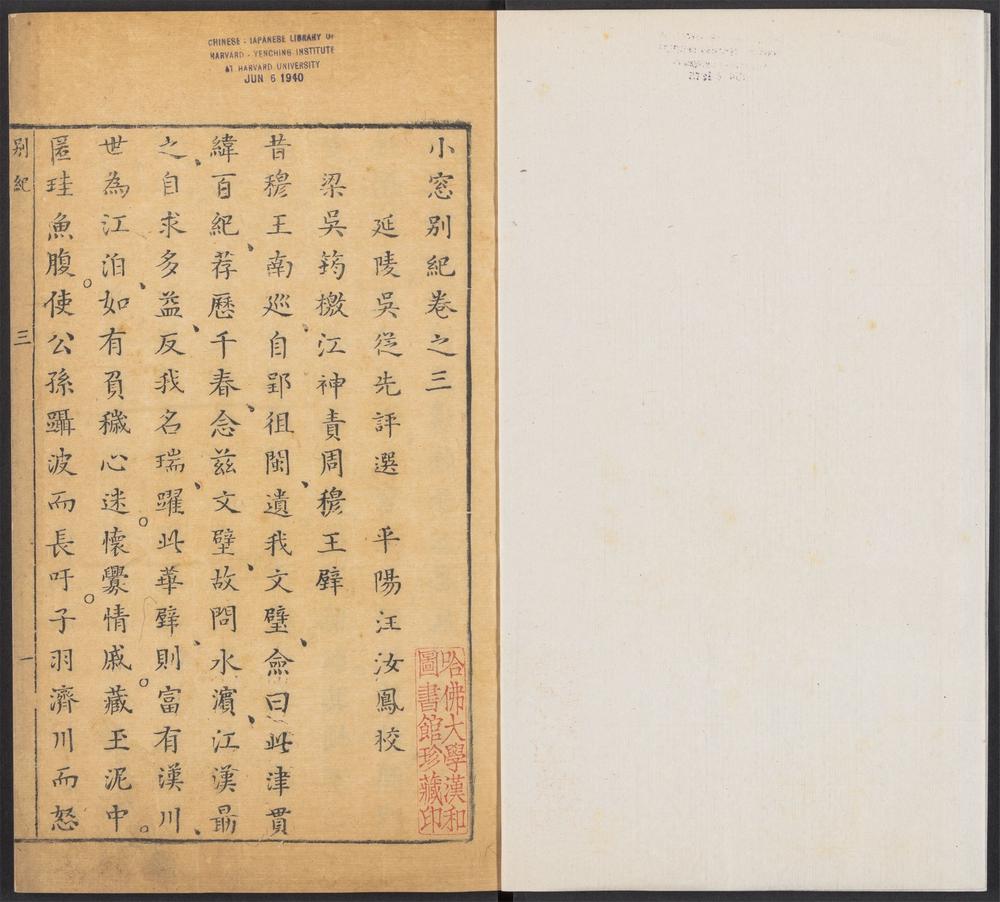 CHINESE - JAPANESE LIBRARY OF
HARVARD - YENCHING INSTITUTE
AT HARVARD UNIVERSITY
JUN 6 1940
小窓别紀卷之三
延陵吳從先評選 平陽汪汝鳳挍
梁吳筠檄江神責周穆王璧
昔穆王南巡自郢徂閩遺我文璧僉曰此津貫
緯百紀荐歷千春念茲文璧故問水濱江漢最
之自求多益反我名瑞躍此華璧則富有漢川
世為江泊如有負穢心迷懷釁情戚藏玉泥中
匿珪魚腹使公孫躡波而長吁子羽濟川而怒
别紀
三
一
哈佛大學漢和
圖書館珍藏印